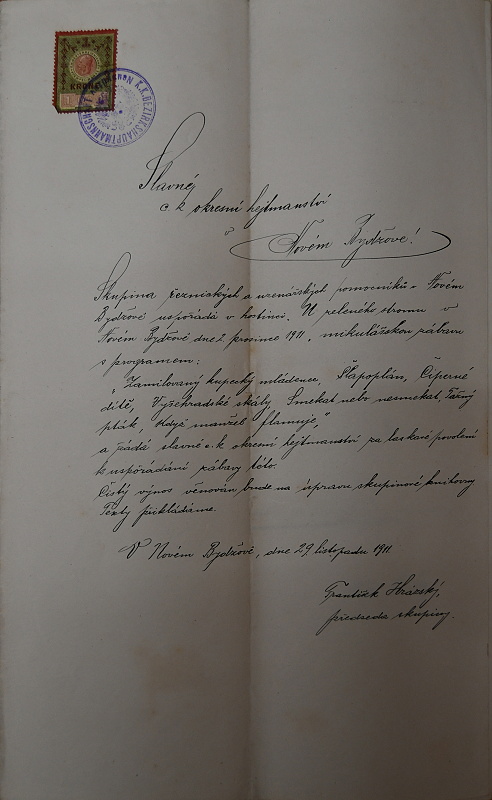 1
KRONE
K.K. BEZIRKSHAUPTMANNSCHAFT
Slavné
c. k. okresní hejtmanství
v
Novém Bydžově!
Skupina řeznických a uzenářských pomocníků v Novém
Bydžově uspořádá v hostinci „U zeleného stromu" v
Novém Bydžově dne 2. prosince 1911 „mikulášskou zábavu"
s programem:
„Zamilovaný kupecký mládenec, Šlapoplán, Čiperné
dítě, Vyšehradské skály, Smekat nebo nesmekat, Tažný
pták, Když manžel flamuje,"
a žádá slavné c. k. okresní hejtmanství za laskavé povolení
k uspořádání zábavy této.
Čistý výnos věnován bude na úpravu skupinové knihovny
Texty přikládáme.
V Novém Bydžově, dne 29. listopadu 1911.
František
předseda skupiny.